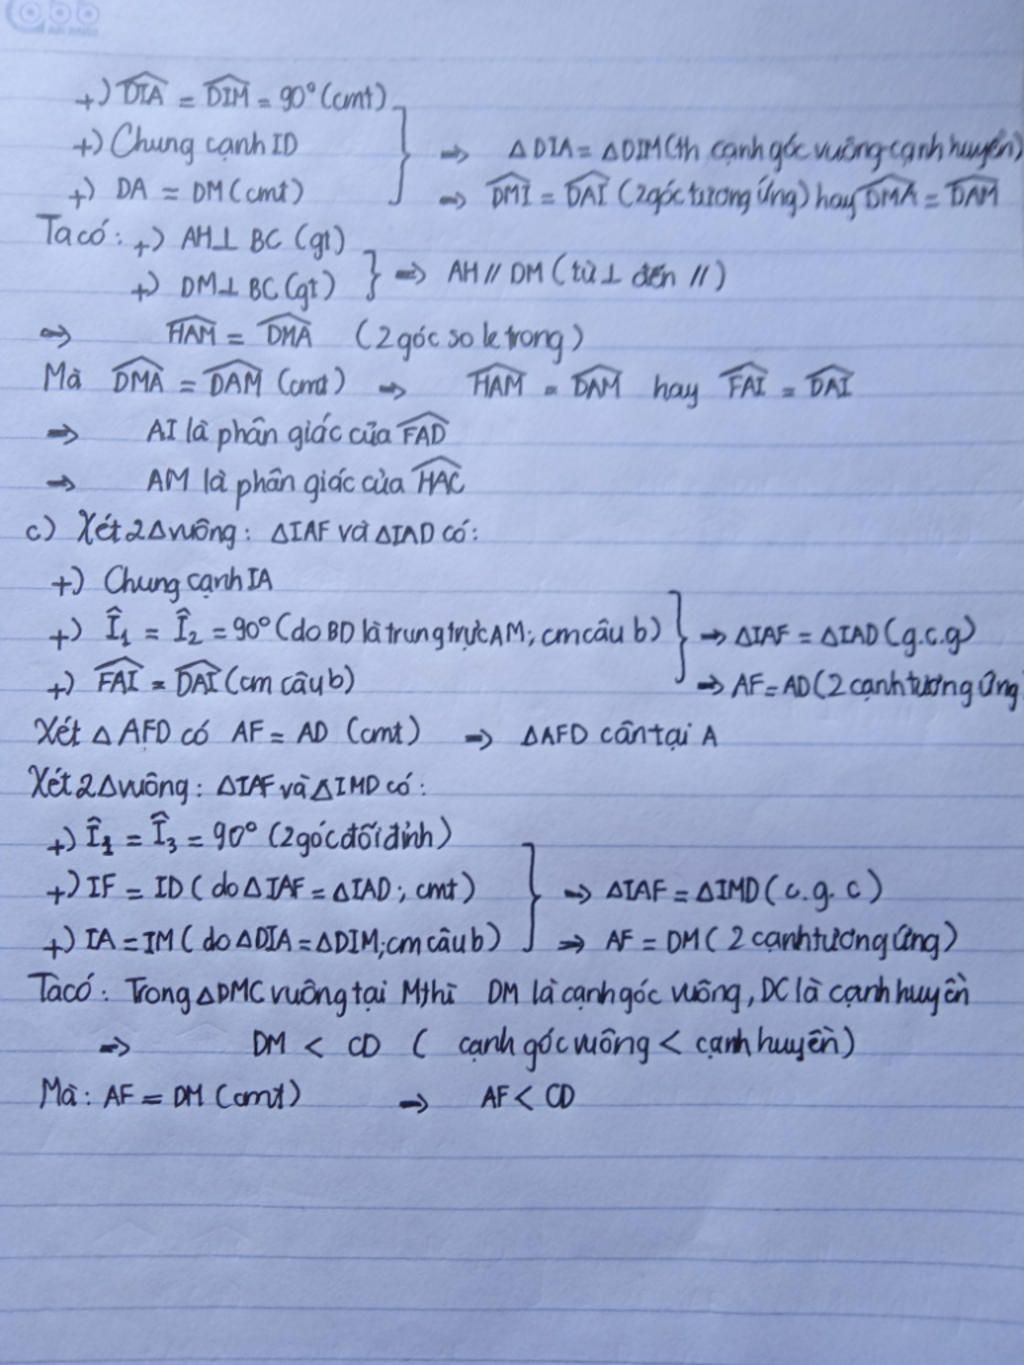 +) $\widehat{DIA}$ = $\widehat{DIM}$ = 90° (cmt)
+) Chung cạnh ID
⇒ ΔDIA = ΔDIM (th cạnh góc vuông cạnh huyền)
+) DA = DM (cmt)
⇒ $\widehat{DMI}$ = $\widehat{DAI}$ (2 góc tương ứng) hay $\widehat{DMA}$ = $\widehat{DAM}$
Ta có: +) AH ⊥ BC (gt)
+) DM ⊥ BC (gt)
⇒ AH // DM (từ ⊥ đến //)
⇒ $\widehat{HAM}$ = $\widehat{DMA}$ (2 góc so le trong)
Mà $\widehat{DMA}$ = $\widehat{DAM}$ (cmt) ⇒ $\widehat{HAM}$ = $\widehat{DAM}$ hay $\widehat{FAI}$ = $\widehat{DAI}$
⇒ AI là phân giác của $\widehat{FAD}$
⇒ AM là phân giác của $\widehat{HAC}$
c) Xét 2Δ vuông: ΔIAF và ΔIAD có:
+) Chung cạnh IA
+) $\hat{I}_1$ = $\hat{I}_2$ = 90° (do BD là trung trực AM; cm câu b) ⇒ ΔIAF = ΔIAD (g.c.g)
+) $\widehat{FAI}$ = $\widehat{DAI}$ (cm câu b) ⇒ AF = AD (2 cạnh tương ứng
Xét Δ AFD có AF = AD (cmt) ⇒ ΔAFD cân tại A
Xét 2Δ vuông: ΔIAF và ΔIMD có:
+) $\hat{I}_1$ = $\hat{I}_3$ = 90° (2 góc đối đỉnh)
+) IF = ID (do ΔIAF = ΔIAD; cmt) ⇒ ΔIAF = ΔIMD (c.g.c)
+) IA = IM (do ΔDIA = ΔDIM; cm câu b) ⇒ AF = DM (2 cạnh tương ứng)
Ta có: Trong ΔDMC vuông tại M thì DM là cạnh góc vuông, DC là cạnh huyền
⇒ DM < CD (cạnh góc vuông < cạnh huyền)
Mà: AF = DM (cmt) ⇒ AF < CD